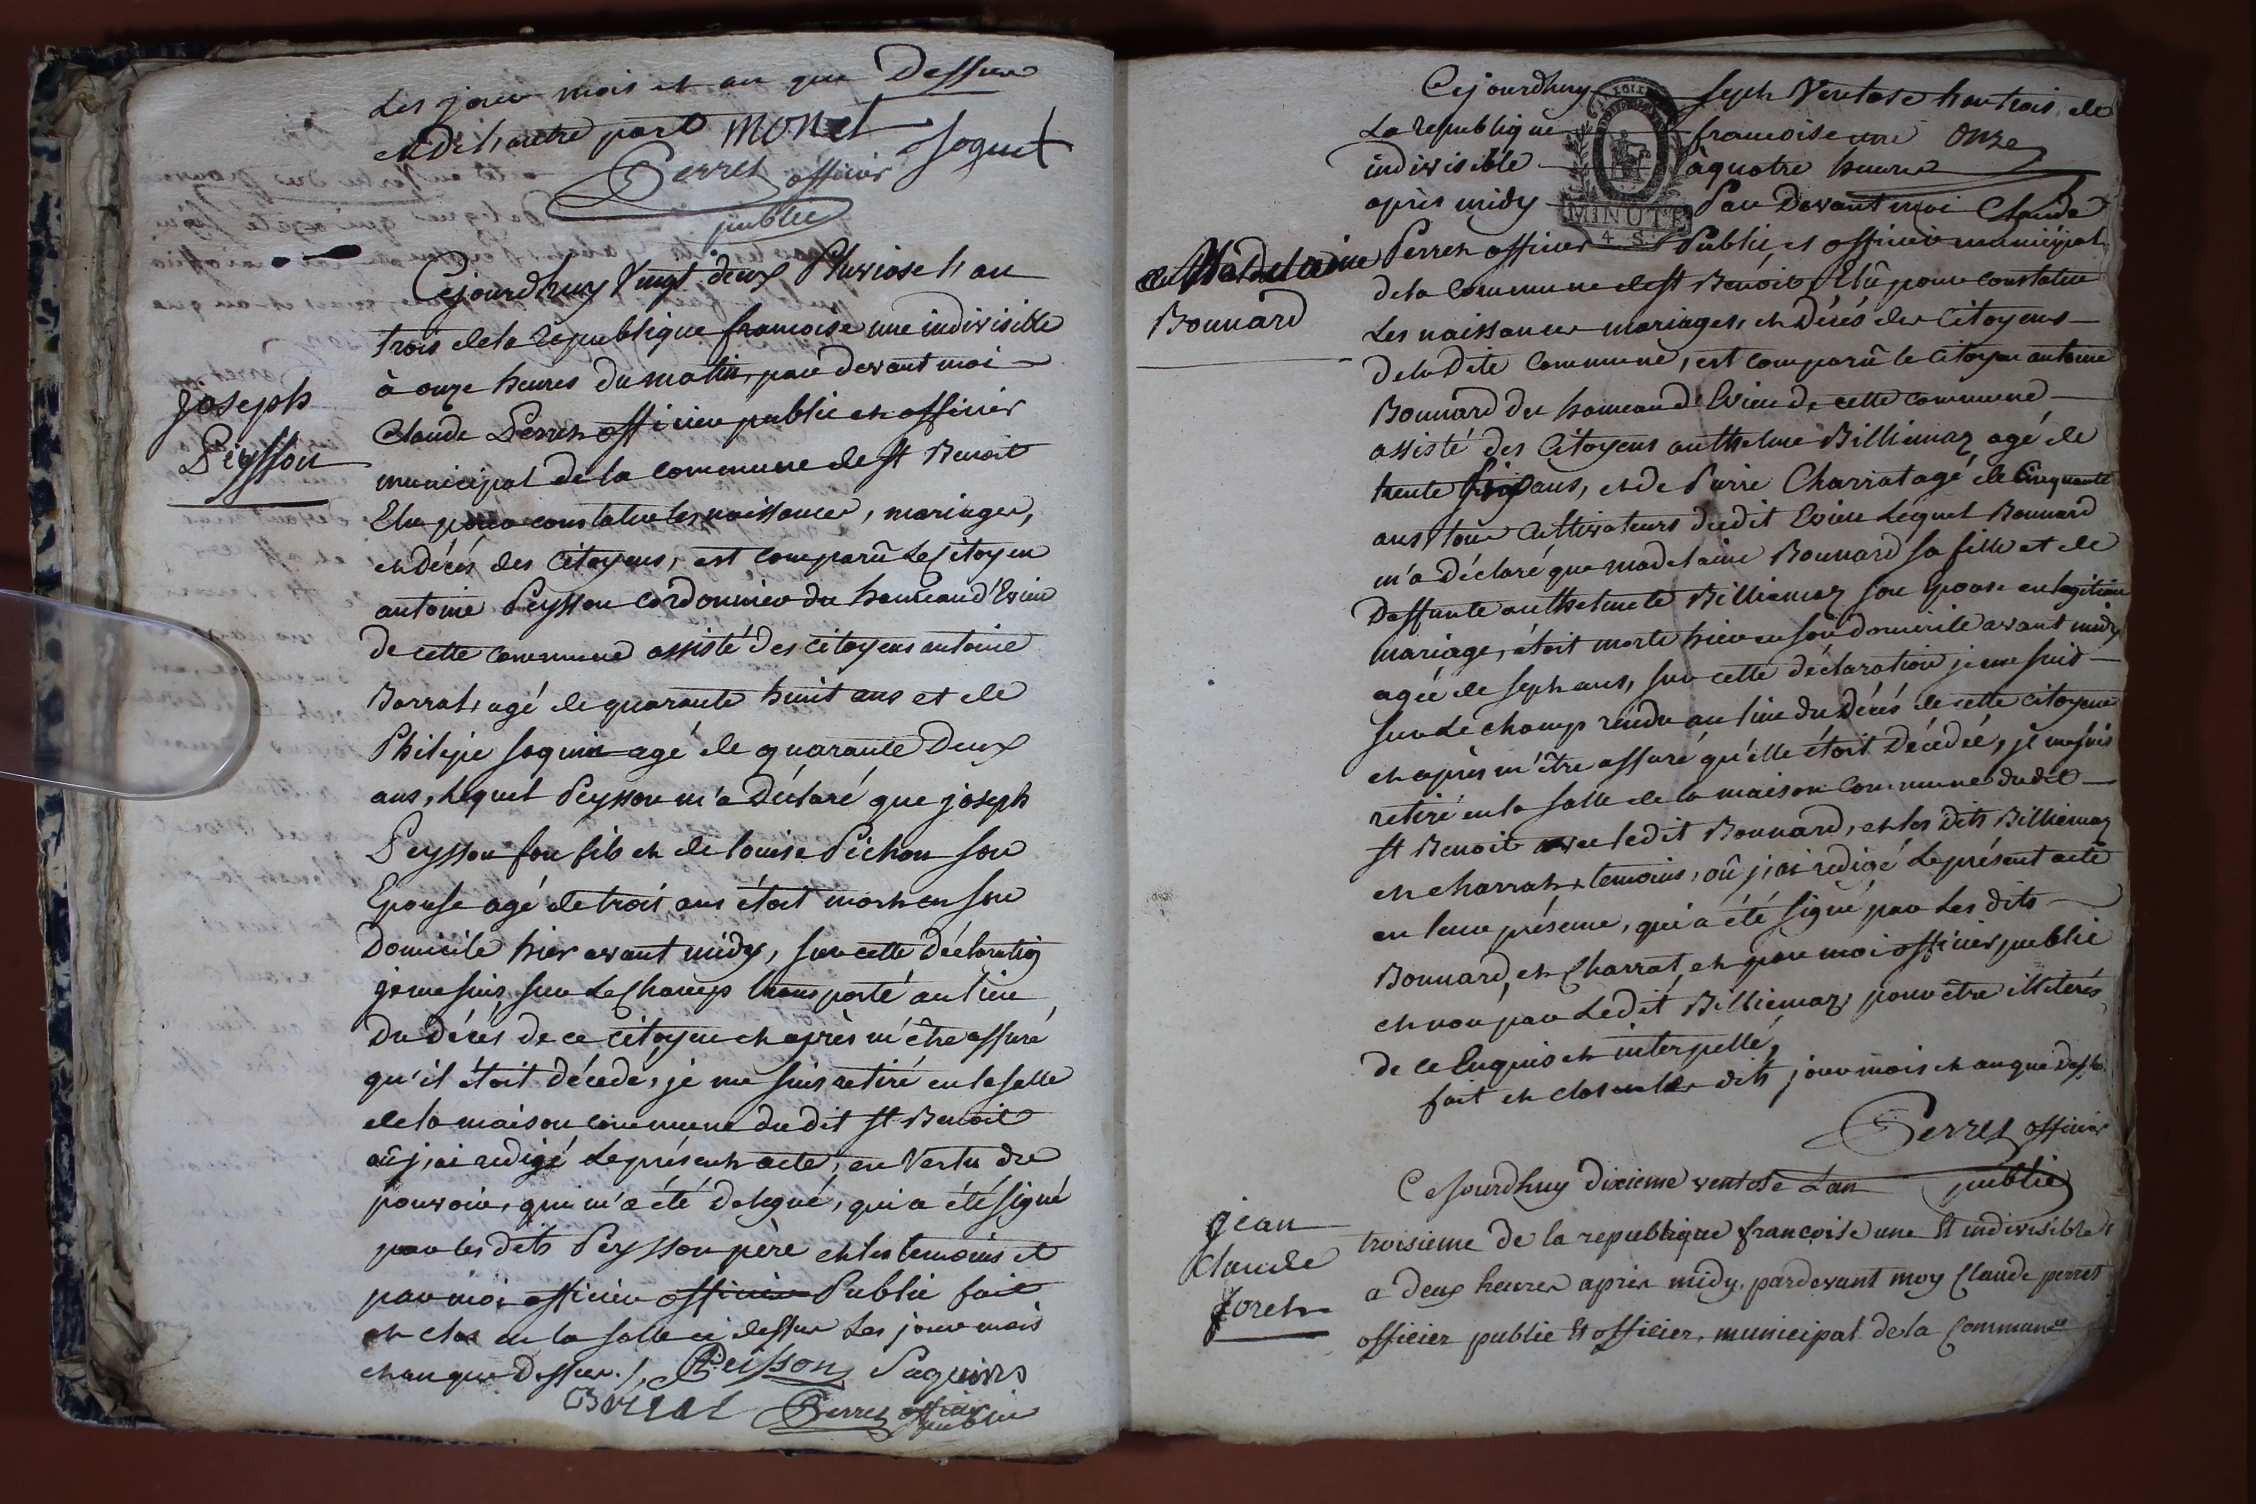 Les jour mois et an que Dessus
et d'hautre part monet
Perret officier Joguet
public
Cejourdhuy Vingt deux Pluviose l'an
trois de la republique francoise une indivisible
à onze heures du matin, par devant moi
Joseph
Claude Perret officier public et officier
Peysson
municipal de la commune de St Benoit
Elu pour constater les naissances, mariages,
et décés des citoyens, est comparû le Citoyen
antoine Peysson cordonnier du hameau d'Evieu
de cette commune assisté des citoyens antoine
Barrat, agé de quarante huit ans et de
Philipe soquin agé de quarante Deux
ans, lequel Peysson m'a Déclaré que joseph
Peysson son fils et de louise Pichon son
Epouse agé de trois ans étoit mort en son
Domicile hier avant midy, sur cette Déclaration
je me suis sur le Champ transporté au lieu
Du décés de ce citoyen et après m'être assuré
qu'il étoit décedé, je me suis retiré en la salle
de la maison commune dudit St Benoit
où j'ai redigé le présent acte, en Vertu des
pouvoirs, qui m'a été delegué, qui a été signé
par les dits Peysson père et les temoins et
par moi officier officier Public fait
et clos en la salle ci dessus Les jour mois
et an que Dessus./. Peisson Saquins
Barrat Perret officier
public
Cejourdhuy sept Ventose l'an trois de
La republique francoise une onze
indivisible à quatre heures
après midy MINUTE Par Devant moi Claude
4. S.
Madelaine Perret officier Public, et officier municipal
Bonnard
de la Commune de St Benoit, Elû pour constater
Les naissances mariages, et Décés des Citoyens
De la Dite Commune, est comparû le Citoyen antoine
Bonnard du hameau d'Evieu de cette commune
assisté des Citoyens anthelme Billiemaz agé de
trente ans, et de Pierre Charrat agé de Cinquante
ans tous Cultivateurs dudit Evieu Lequel Bonnard
m'a Déclaré que madelaine Bonnard sa fille et de
Deffunte anthelmete Billiemaz son Epouse en legitime
mariage, étoit morte hier en son domicile avant midy
agée de sept ans, sur cette déclaration je me suis
sur Le champ rendu au lieu du Décés de cette citoyene
et après m'être assuré qu'elle étoit Décédée, je me suis
retiré en la salle de la maison Commune dudit
St Benoit avec ledit Bonnard, et les dits Billiemaz
et charrat, temoins, où j'ai redigé Le présent acte
en leur présence, qui a été signé par Les dits
Bonnard, et Charrat, et par moi officier public
et non par Ledit Billiemaz pour être illiterés
de ce Enquis et interpellé,
fait et clos en les dits jour mois et an que Dessus
Perret officier
public
Cejourdhuy dixieme ventose Lan
jean
Claude
joret
troisieme de la republique françoise une Et indivisible
a deux heures après midy, pardevant moy Claude perret
officier public Et officier, municipal de la Commune